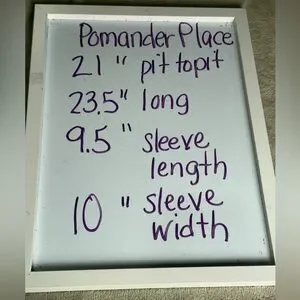 Pomander Place
21" pit to pit
23.5" long
9.5" sleeve
length
10" sleeve
width